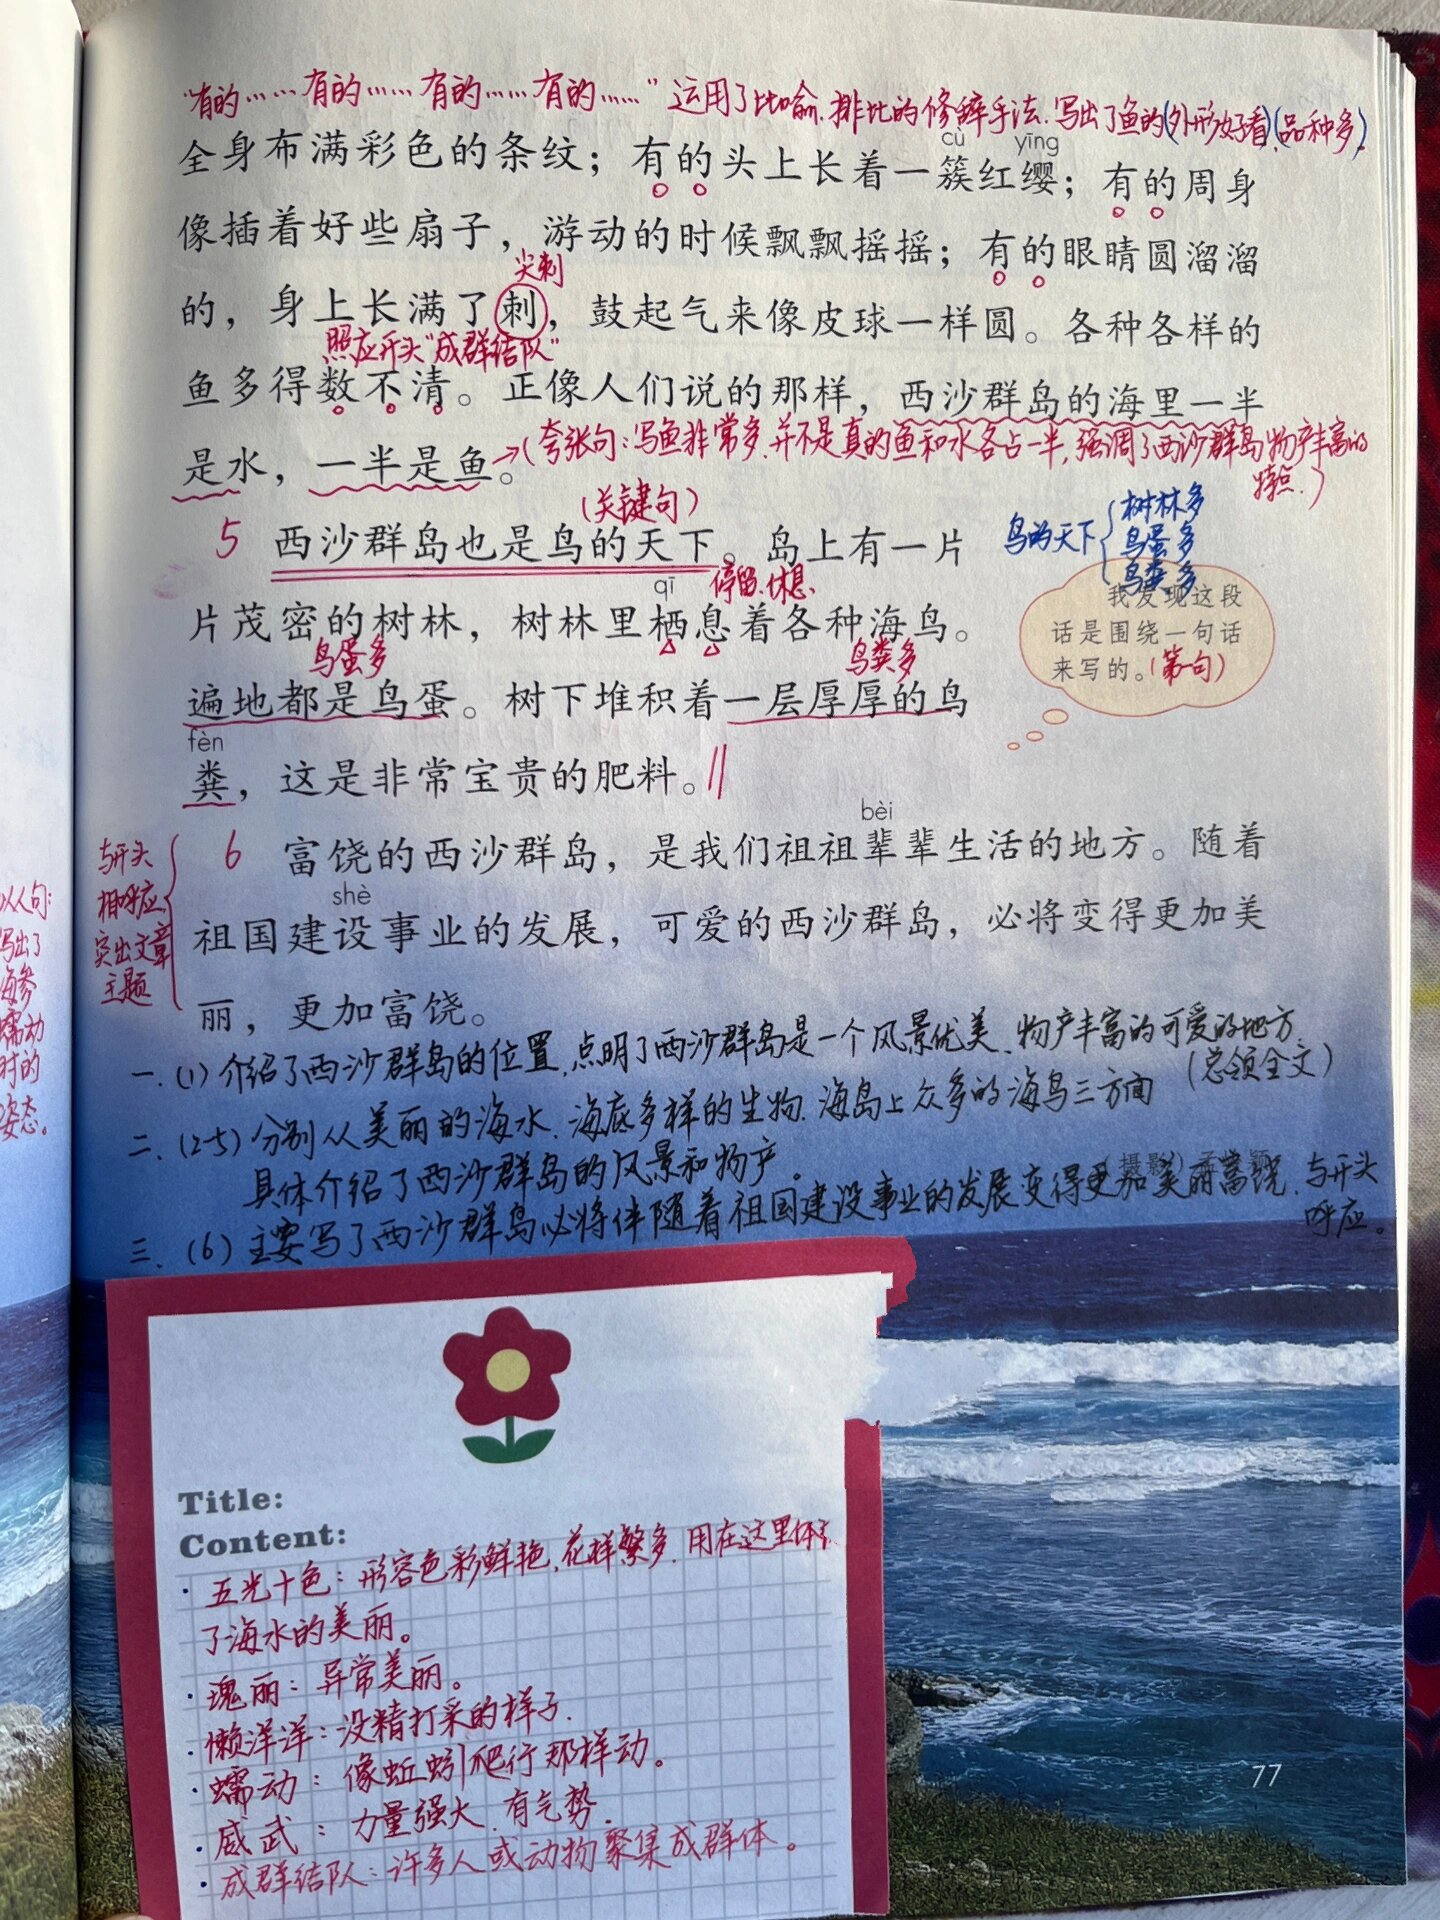 “有的……有的……有的……有的……”运用了比喻、排比的修辞手法、写出了鱼的(外形好看)(品种多)。
cù yīng
全身布满彩色的条纹；有的头上长着一簇红缨；有的周身
像插着好些扇子，游动的时候飘飘摇摇；有的眼睛圆溜溜
尖刺
的，身上长满了刺，鼓起气来像皮球一样圆。各种各样的
照应开头“成群结队”
鱼多得数不清。正像人们说的那样，西沙群岛的海里一半
是水，一半是鱼。
→(夸张句：写鱼非常多，并不是真的鱼和水各占一半，强调了西沙群岛物产丰富的
特点.)
(关键句)
5 西沙群岛也是鸟的天下。岛上有一片
鸟的天下
树林多
鸟蛋多
鸟粪多
qī 停留、休息、
片茂密的树林，树林里栖息着各种海鸟。
我发现这段
话是围绕一句话
来写的。(第一句)
鸟蛋多 鸟粪多
遍地都是鸟蛋。树下堆积着一层厚厚的鸟
fèn
粪，这是非常宝贵的肥料。
bèi
6 富饶的西沙群岛，是我们祖祖辈辈生活的地方。随着
shè
祖国建设事业的发展，可爱的西沙群岛，必将变得更加美
丽，更加富饶。
与开头
相呼应，
突出文章
主题
写出了
海参
蠕动
时的
姿态。
一、(1) 介绍了西沙群岛的位置，点明了西沙群岛是一个风景优美、物产丰富的可爱的地方。
(总领全文)
二、(2-5) 分别从美丽的海水、海底多样的生物、海岛上众多的海鸟三方面
具体介绍了西沙群岛的风景和物产。
(摄影)
三、(6) 主要写了西沙群岛必将伴随着祖国建设事业的发展变得更加美丽富饶、与开头
呼应。
Title:
Content:
· 五光十色：形容色彩鲜艳，花样繁多，用在这里体现
了海水的美丽。
· 瑰丽：异常美丽。
· 懒洋洋：没精打采的样子.
· 蠕动：像蚯蚓爬行那样动。
· 威武：力量强大，有气势.
· 成群结队：许多人或动物聚集成群体。
77